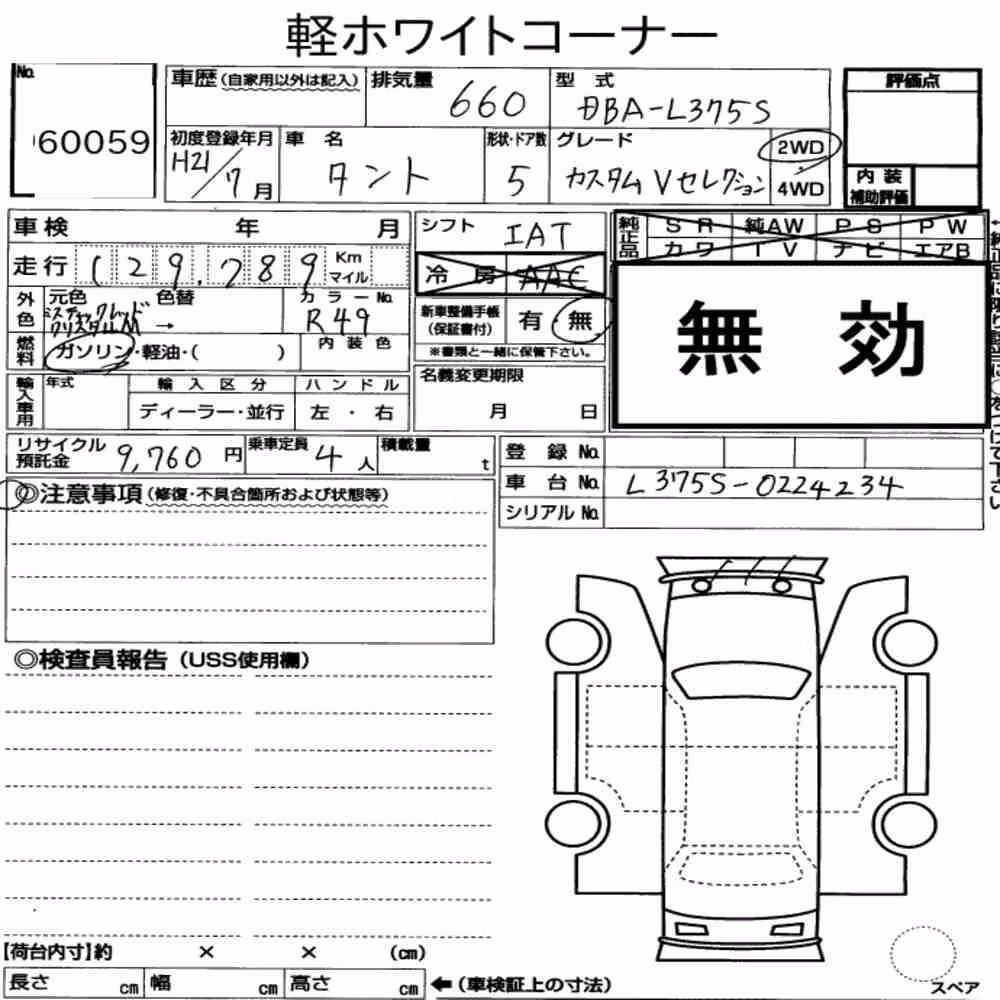 軽ホワイトコーナー
No.
60059
車歴(自家用以外は記入)
排気量
660
型式
DBA-L375S
評価点
初度登録年月
H21/7月
車名
タント
形状・ドア数
5
グレード
カスタム Vセレクション
2WD
4WD
内装
補助評価
車検 年 月
走行 129,789 Km マイル
シフト
IAT
冷房 AAC
純正品
SR 純AW PS PW
カワ TV ナビ エアB
無効
外色
元色 色替
ミスティックレッド
クリスタルM →
カラーNo.
R49
新車整備手帳
(保証書付)
有 無
※書類と一緒に保管下さい。
燃料
ガソリン・軽油・( )
内装色
輸入車用
年式
輸入区分
ハンドル
ディーラー・並行
左・右
名義変更期限
月 日
リサイクル
預託金
9,760円
乗車定員
4人
積載量
t
登録No.
車台No. L375S-0224234
シリアルNo.
◎注意事項(修復・不具合箇所および状態等)
◎検査員報告(USS使用欄)
【荷台内寸】約 × × (cm)
長さ cm 幅 cm 高さ cm ←(車検証上の寸法)
スペア